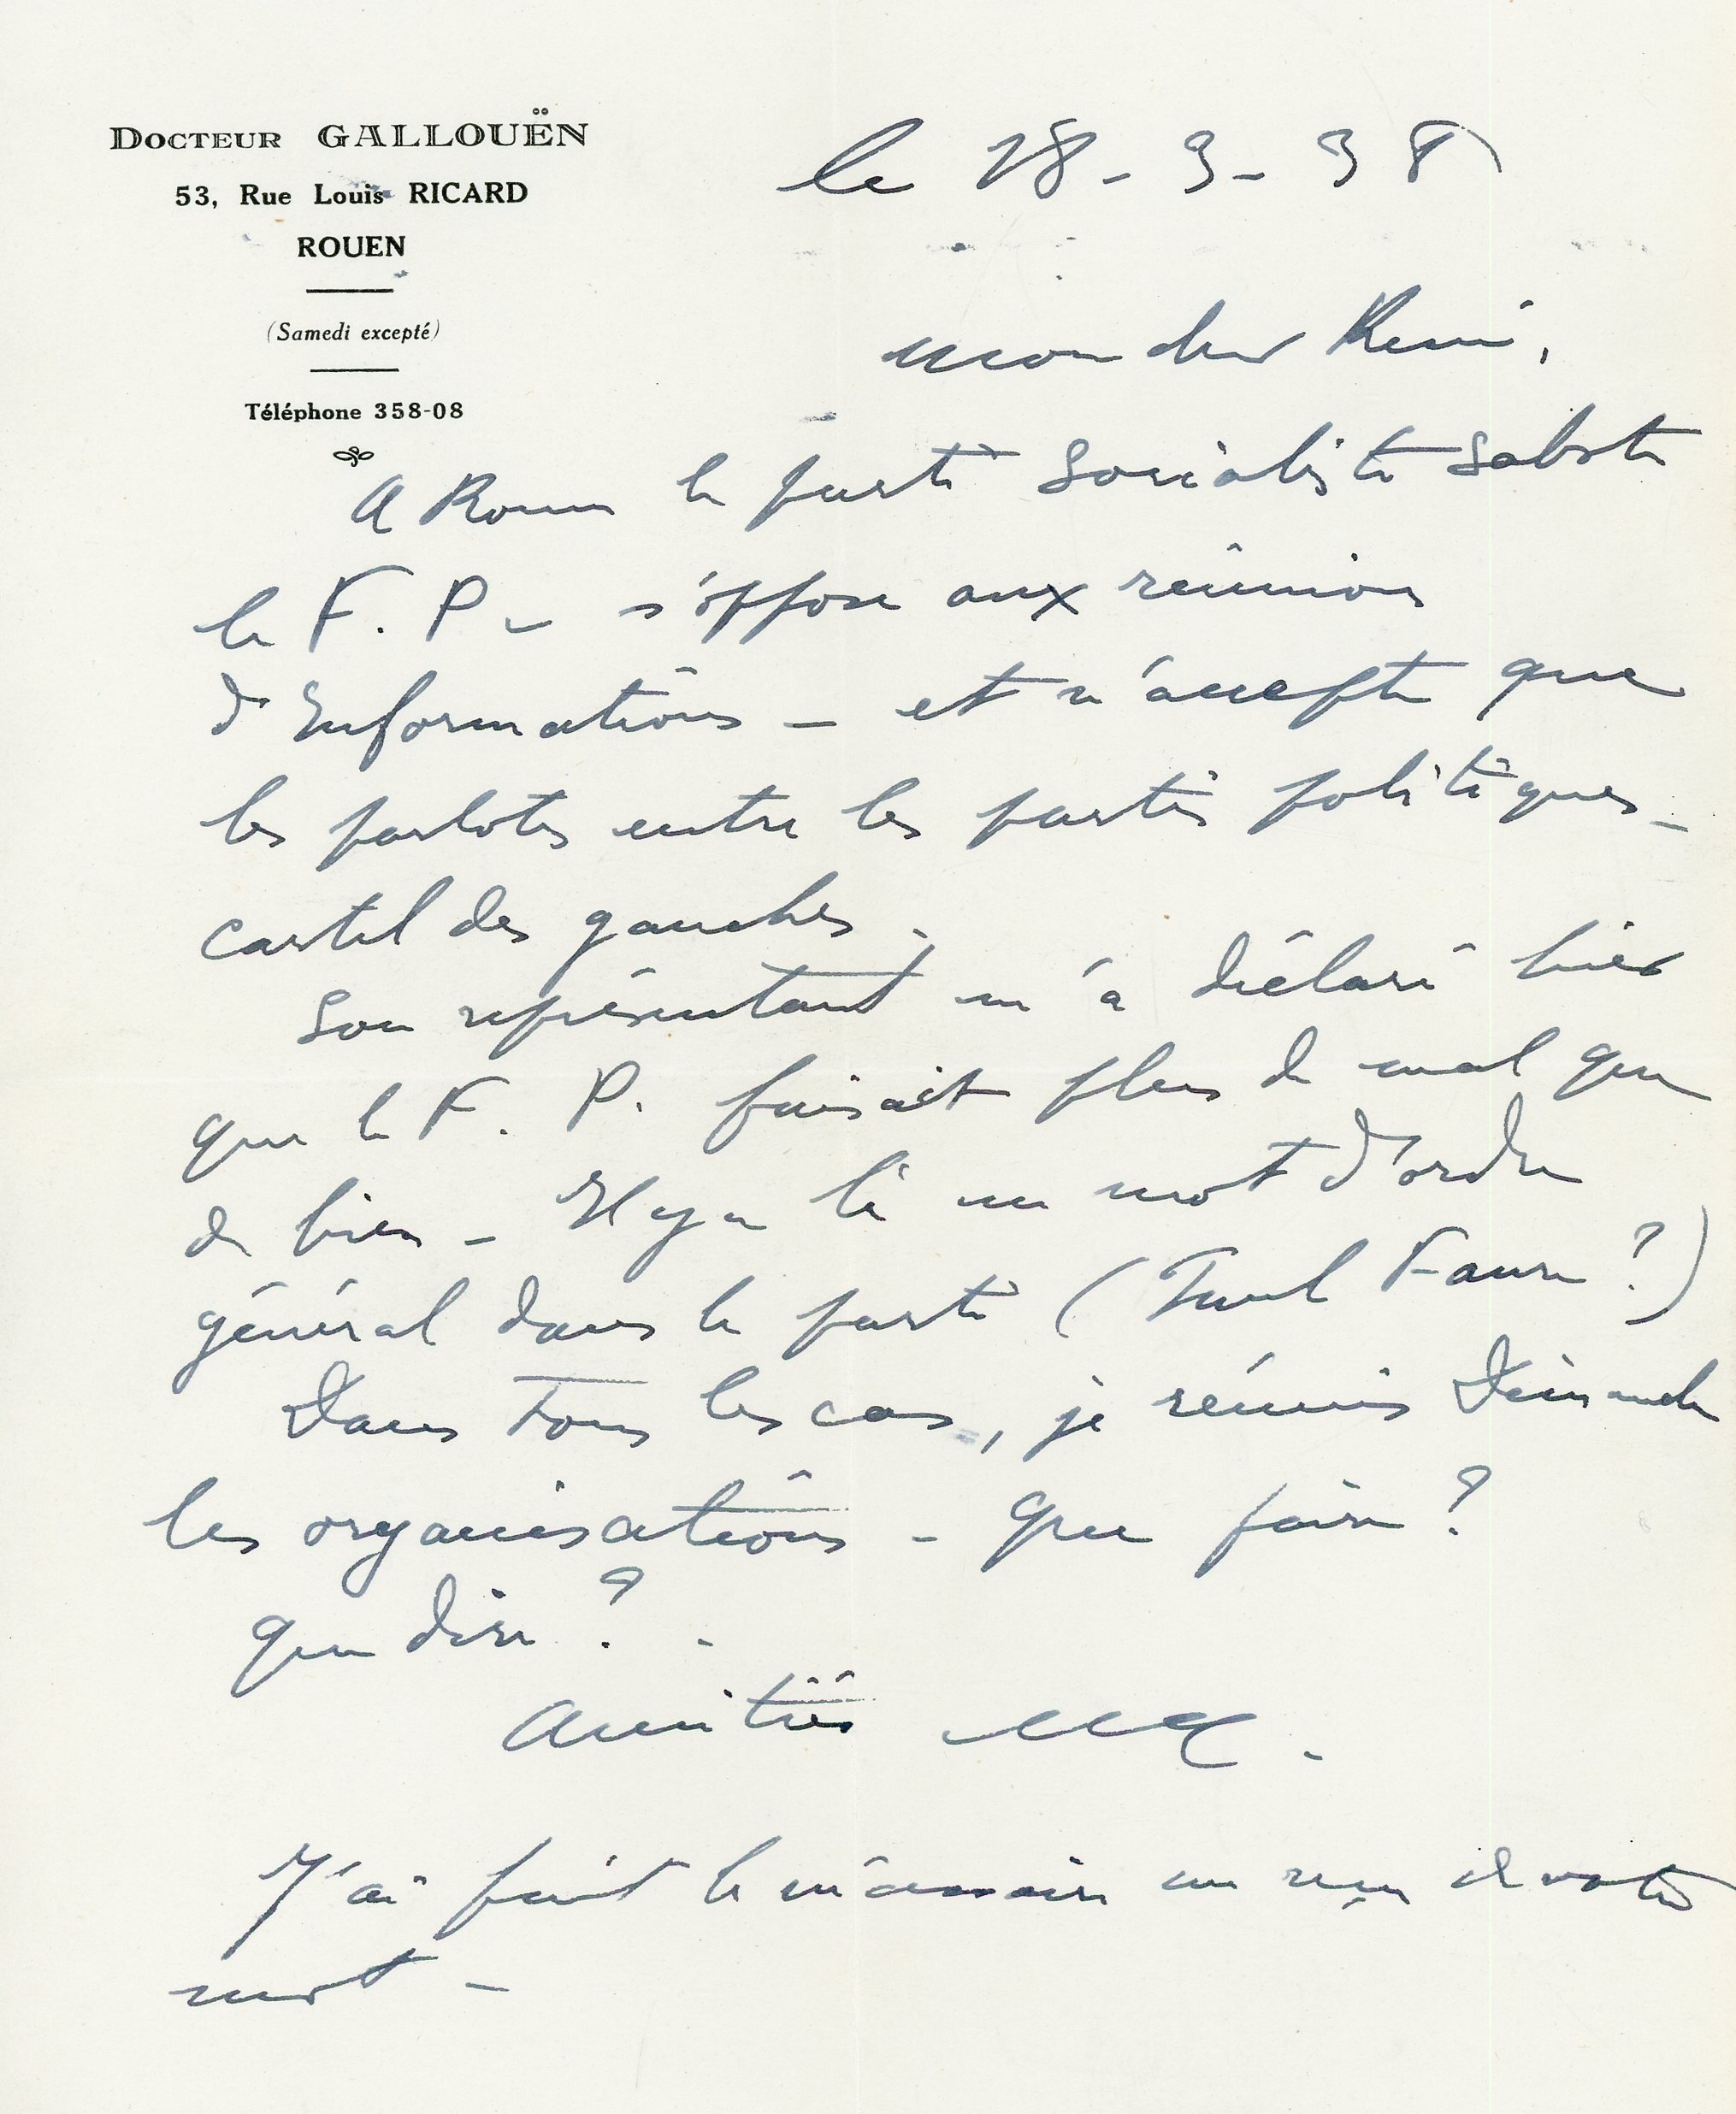 DOCTEUR GALLOUËN
53, Rue Louis RICARD
ROUEN
(Samedi excepté)
Téléphone 358-08
le 18-3-38
mon cher René,
A Rouen le parti Socialiste sabote
le F. P. - s'oppose aux réunions
d'Informations - et n'accepte que
les parlotes entre les partis politiques -
cartel des gauches.
Son représentant m'a déclaré hier
que le F. P. faisait plus de mal que
de bien - Il y a là un mot d'ordre
général dans le parti (Paul Faure ?)
Dans tous les cas, je réunis Dimanche
les organisations - que faire ?
que dire ? -
Amitiés
J'ai fait le nécessaire au reçu de votre
mot -